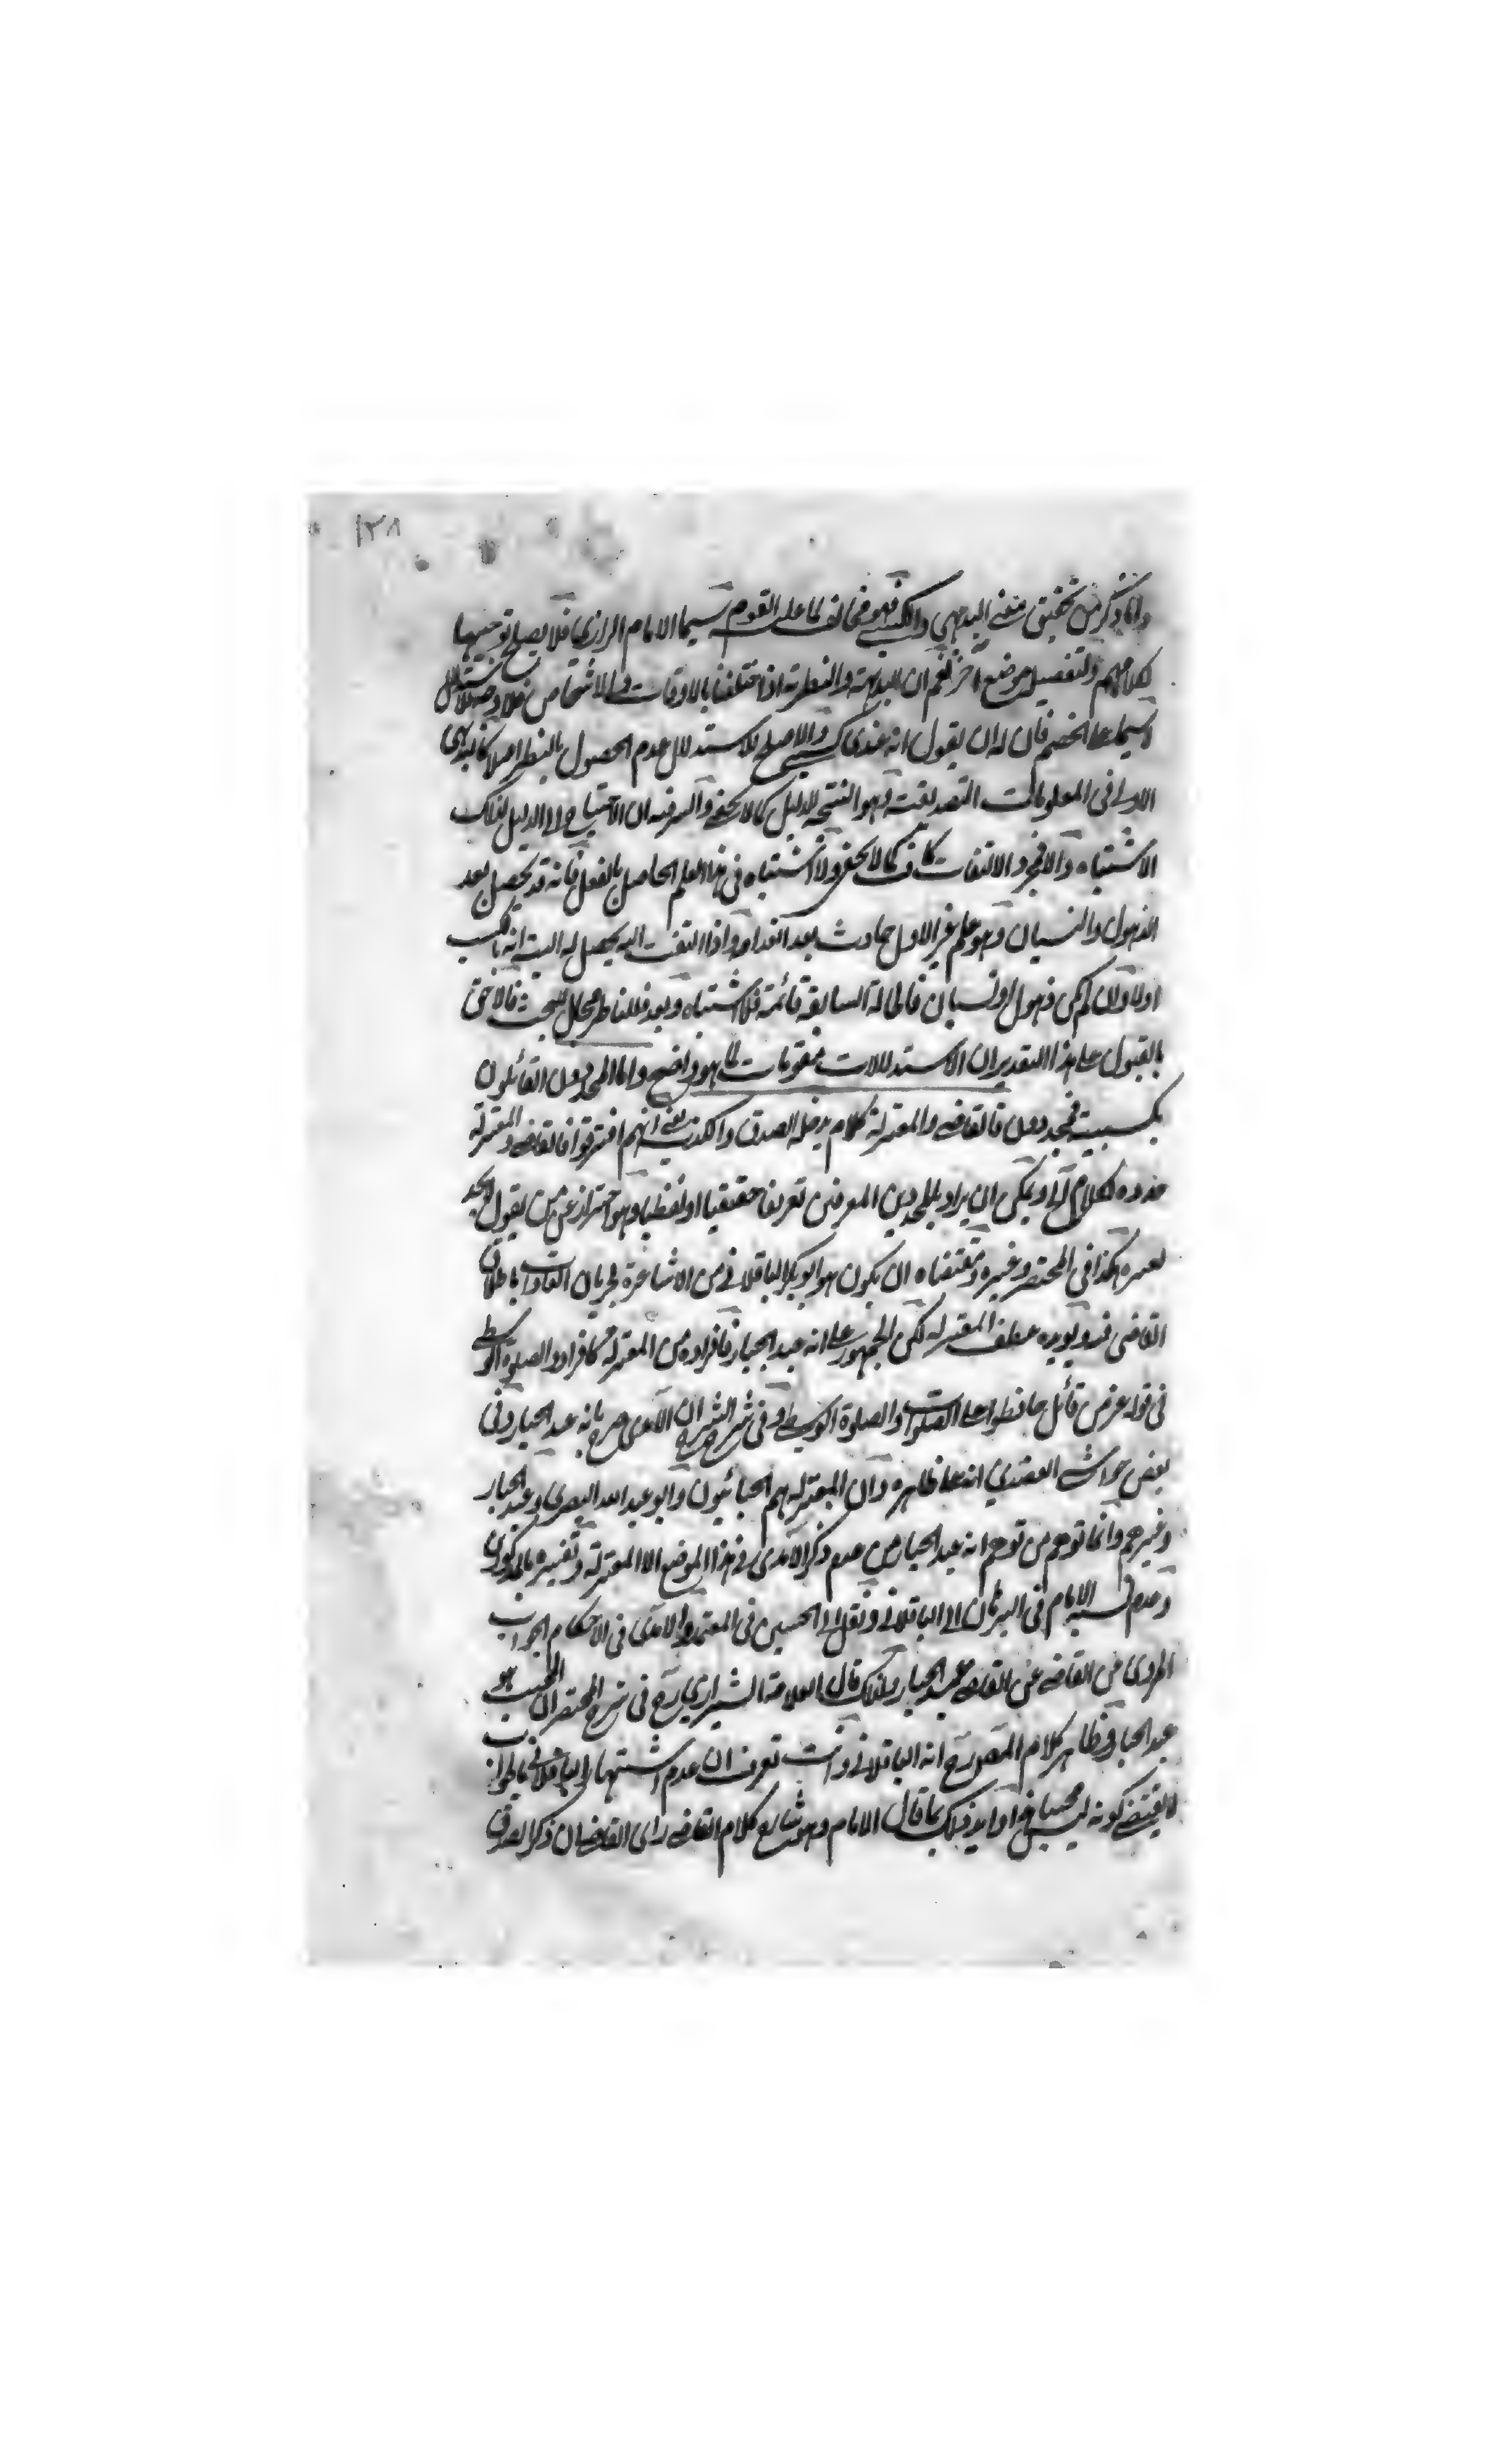 ١٢٨
واما ذكر من تحقيق معنى البديهي والكسبي فهو مخالف لما عليه القوم سيما الامام الرازي فلا يصلح توجيها
كلامهم ولتفصيل موضع آخر نعم ان البديهة والنظرية اذا اختلفتا بالاوقات والاشخاص فلا وجه للاستدلال
لا سيما على الخصم فان له ان يقول انه عندي كسبي والاصلح للاستدلال عدم الحصول بالنظر اصلا كالبديهي
الاولى في المعلومات التصديقية وهو النتيجة لدليل كما لا يخفى والسر فيه ان الاحتياج الى الدليل لذلك
الاشتباه والا فمجرد الالتفات كاف كما لا يخفى ولا اشتباه في هذا العلم الحاصل بالفعل فانه قد يحصل بعد
الذهول والنسيان وهو علم غير الاول حادث بعد انعدامه واذا التفت اليه يحصل له البتة انه بالكسب
اولا وان لم يكن ذهول او نسيان فالحالة السابقة قائمة فلا اشتباه وبعد فللناظر مجال للبحث فالاحق
بالقبول على هذا التقدير ان الاستدلالات منقوضات كما هو واضح واما المحدون القائلون
بكسبيته فمحددون فالقاضي والمعتزلة كلام يدخله الصدق والكذب يعني انهم افترقوا فالقاضي والمعتزلة
حدوه بكلام الخ ويمكن ان يراد بالمحدين المعرفين تعريفا حقيقيا او لفظيا وهو احتراز عن من يقول لا يحد
لعسره هكذا في المختصر وغيره ومقتضاه ان يكون هو ابو بكر الباقلاني من الاشاعرة لجريان العادة باطلاق
القاضي فيه ويؤيده عطف المعتزلة لكن الجمهور على انه عبد الجبار فافراده من المعتزلة كافراد الصلوة الوسطى
في قوله عز من قائل حافظوا على الصلوات والصلوة الوسطى وفي شرح الشرح ان الآمدي صرح بانه عبد الجبار وفي
بعض حواشي العضدي انه على ظاهره وان المعتزلة هم الجبائيون وابو عبد الله البصري وعبد الجبار
وغيرهم وانما توهم من توهم انه عبد الجبار من عدم ذكر الآمدي في هذا الموضع الا المعتزلة وتفسيره بالمذكورين
وعدم نسبة الامام في البرهان الى الباقلاني ونقل ابي الحسين في المعتمد والآمدي في الاحكام الجواب
المروي عن القاضي عن القاضي عبد الجبار ولذلك قال العلامة الشيرازي رح في شرح المختصر ان المجيب هو
عبد الجبار وظاهر كلام المص رح انه الباقلاني وانت تعرف ان عدم اشتهار الباقلاني بالجواب
لا يقتضي كونه ليس مجيبا وايد ذلك بما قال الامام وهو شايع كلام القاضي راى القاضي ان ذكر الصدق